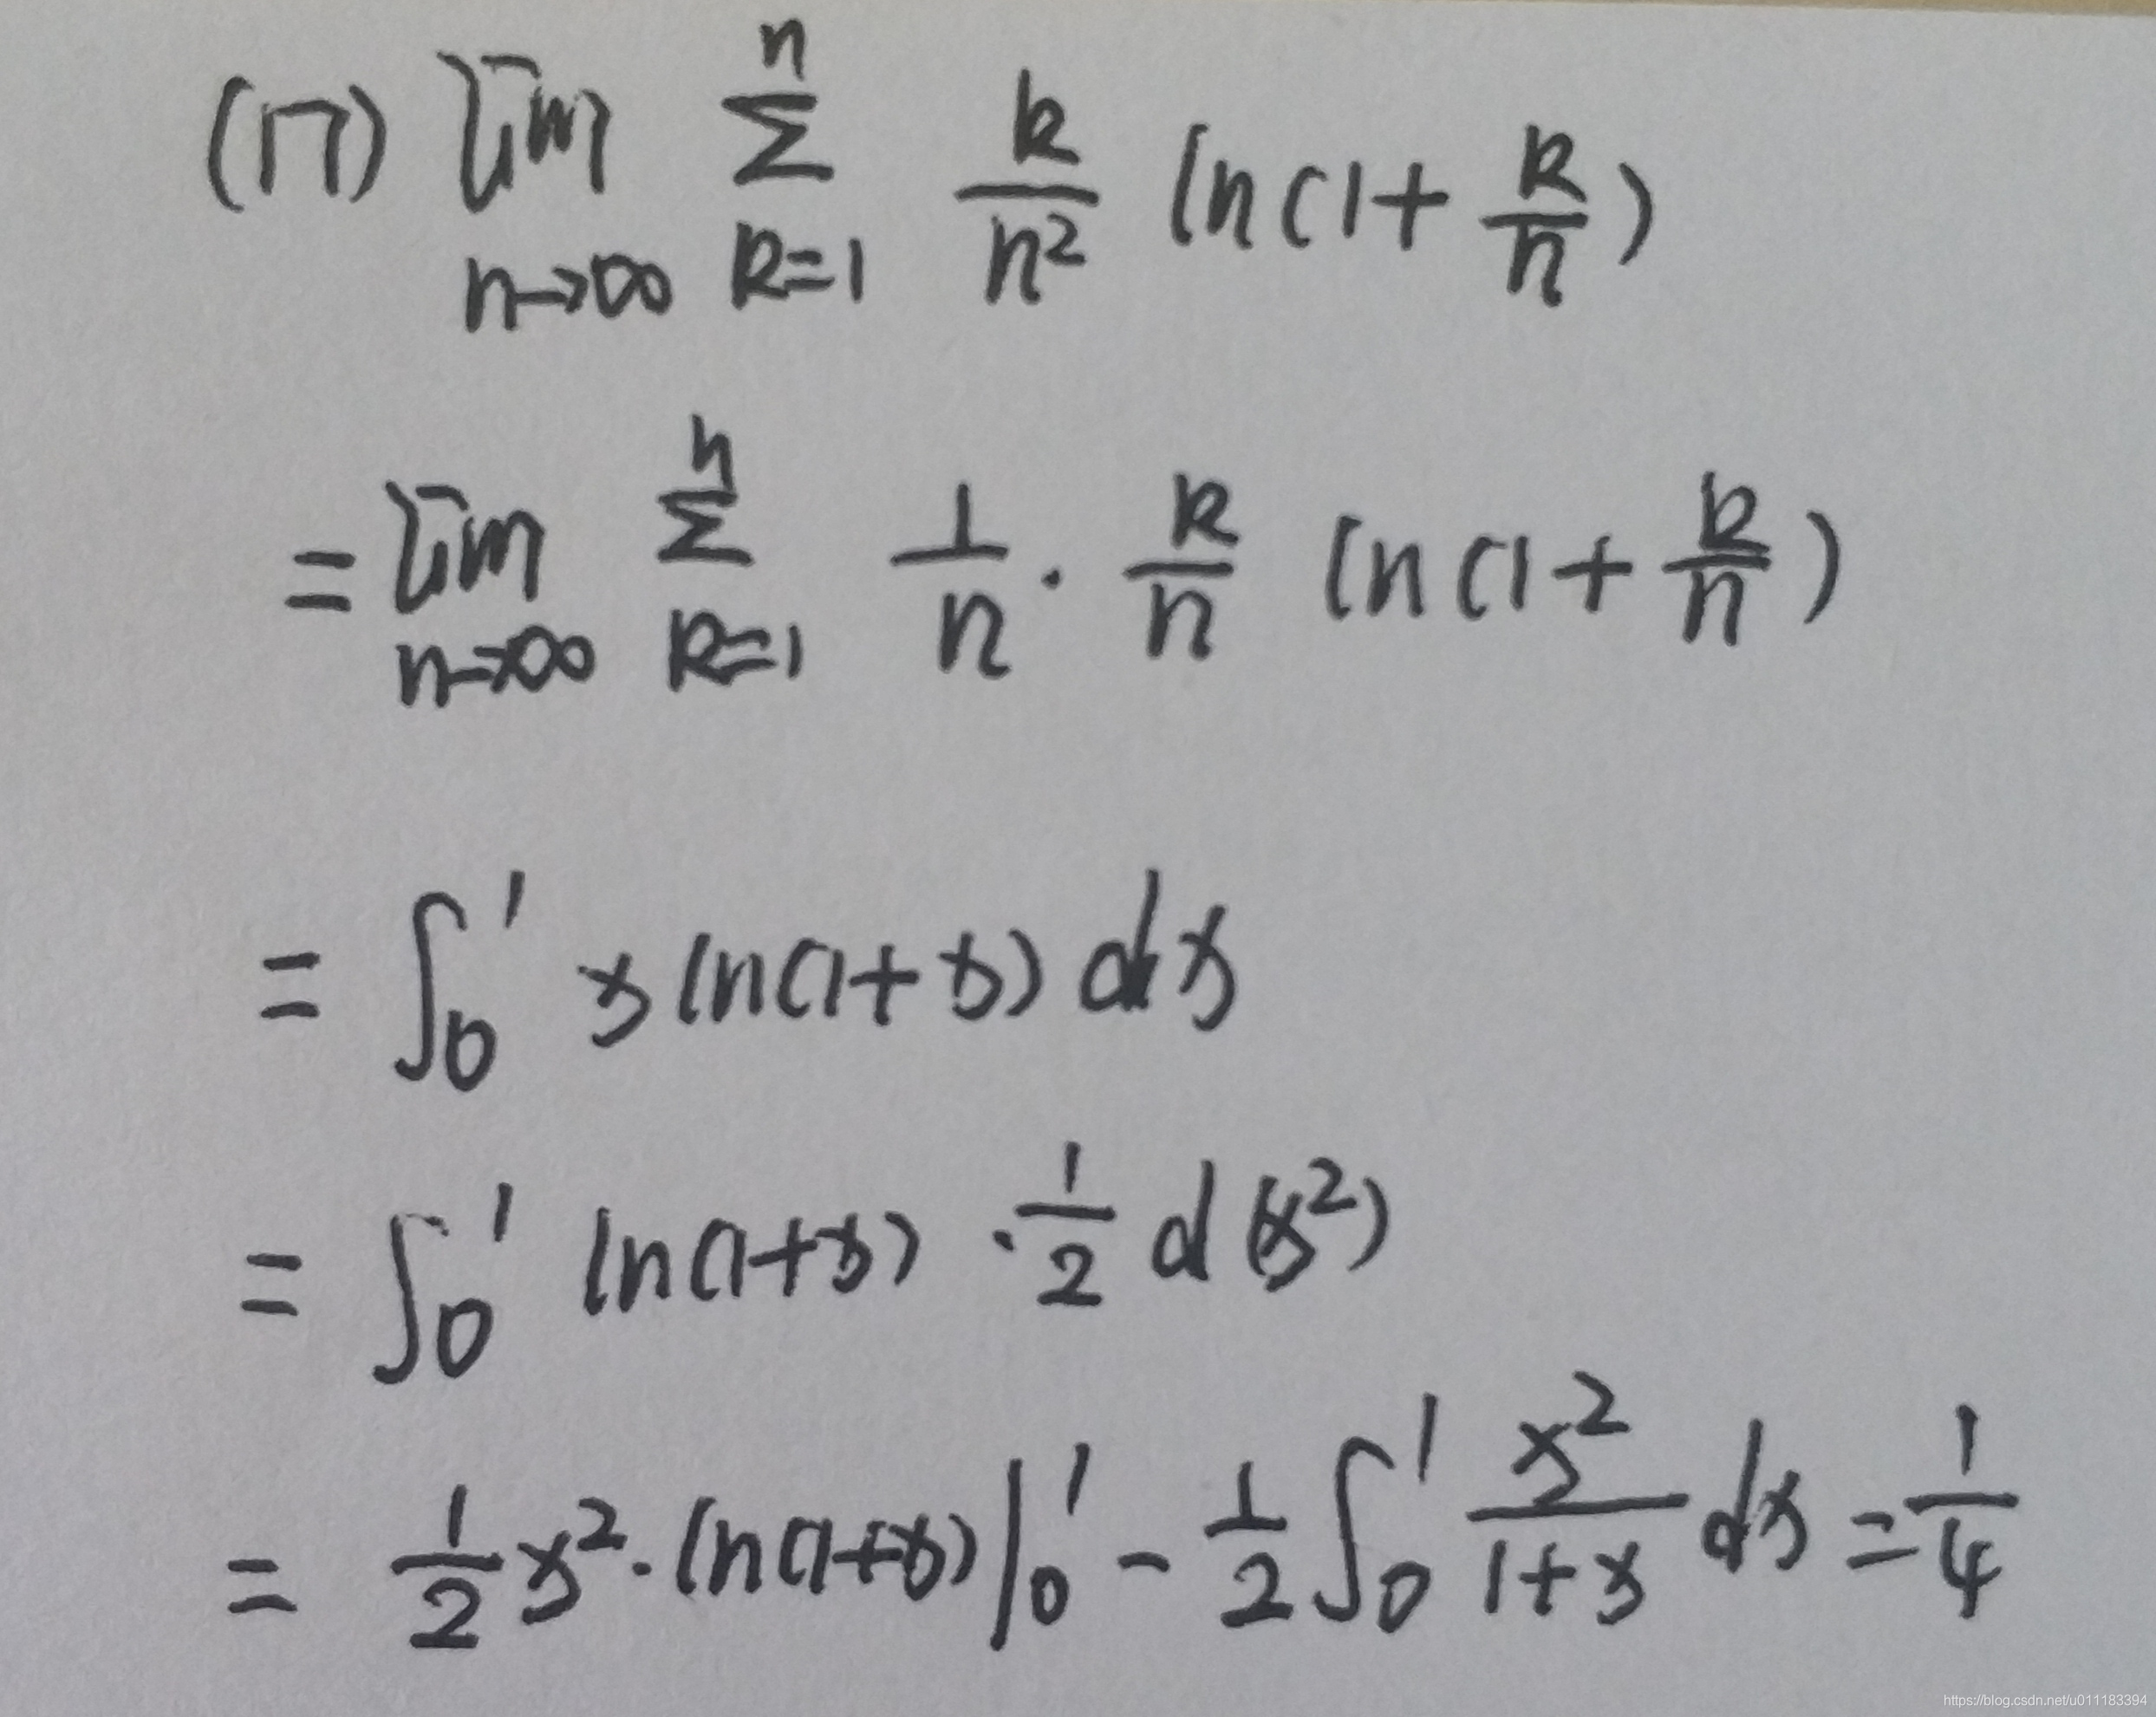 (17) lim_{n→∞} ∑_{k=1}^{n} \frac{k}{n^2} ln(1+\frac{k}{n})
= lim_{n→∞} ∑_{k=1}^{n} \frac{1}{n} · \frac{k}{n} ln(1+\frac{k}{n})
= ∫_0^1 x ln(1+x) dx
= ∫_0^1 ln(1+x) · \frac{1}{2} d(x^2)
= \frac{1}{2} x^2 · ln(1+x) |_0^1 - \frac{1}{2} ∫_0^1 \frac{x^2}{1+x} dx = \frac{1}{4}
https://blog.csdn.net/u011183394